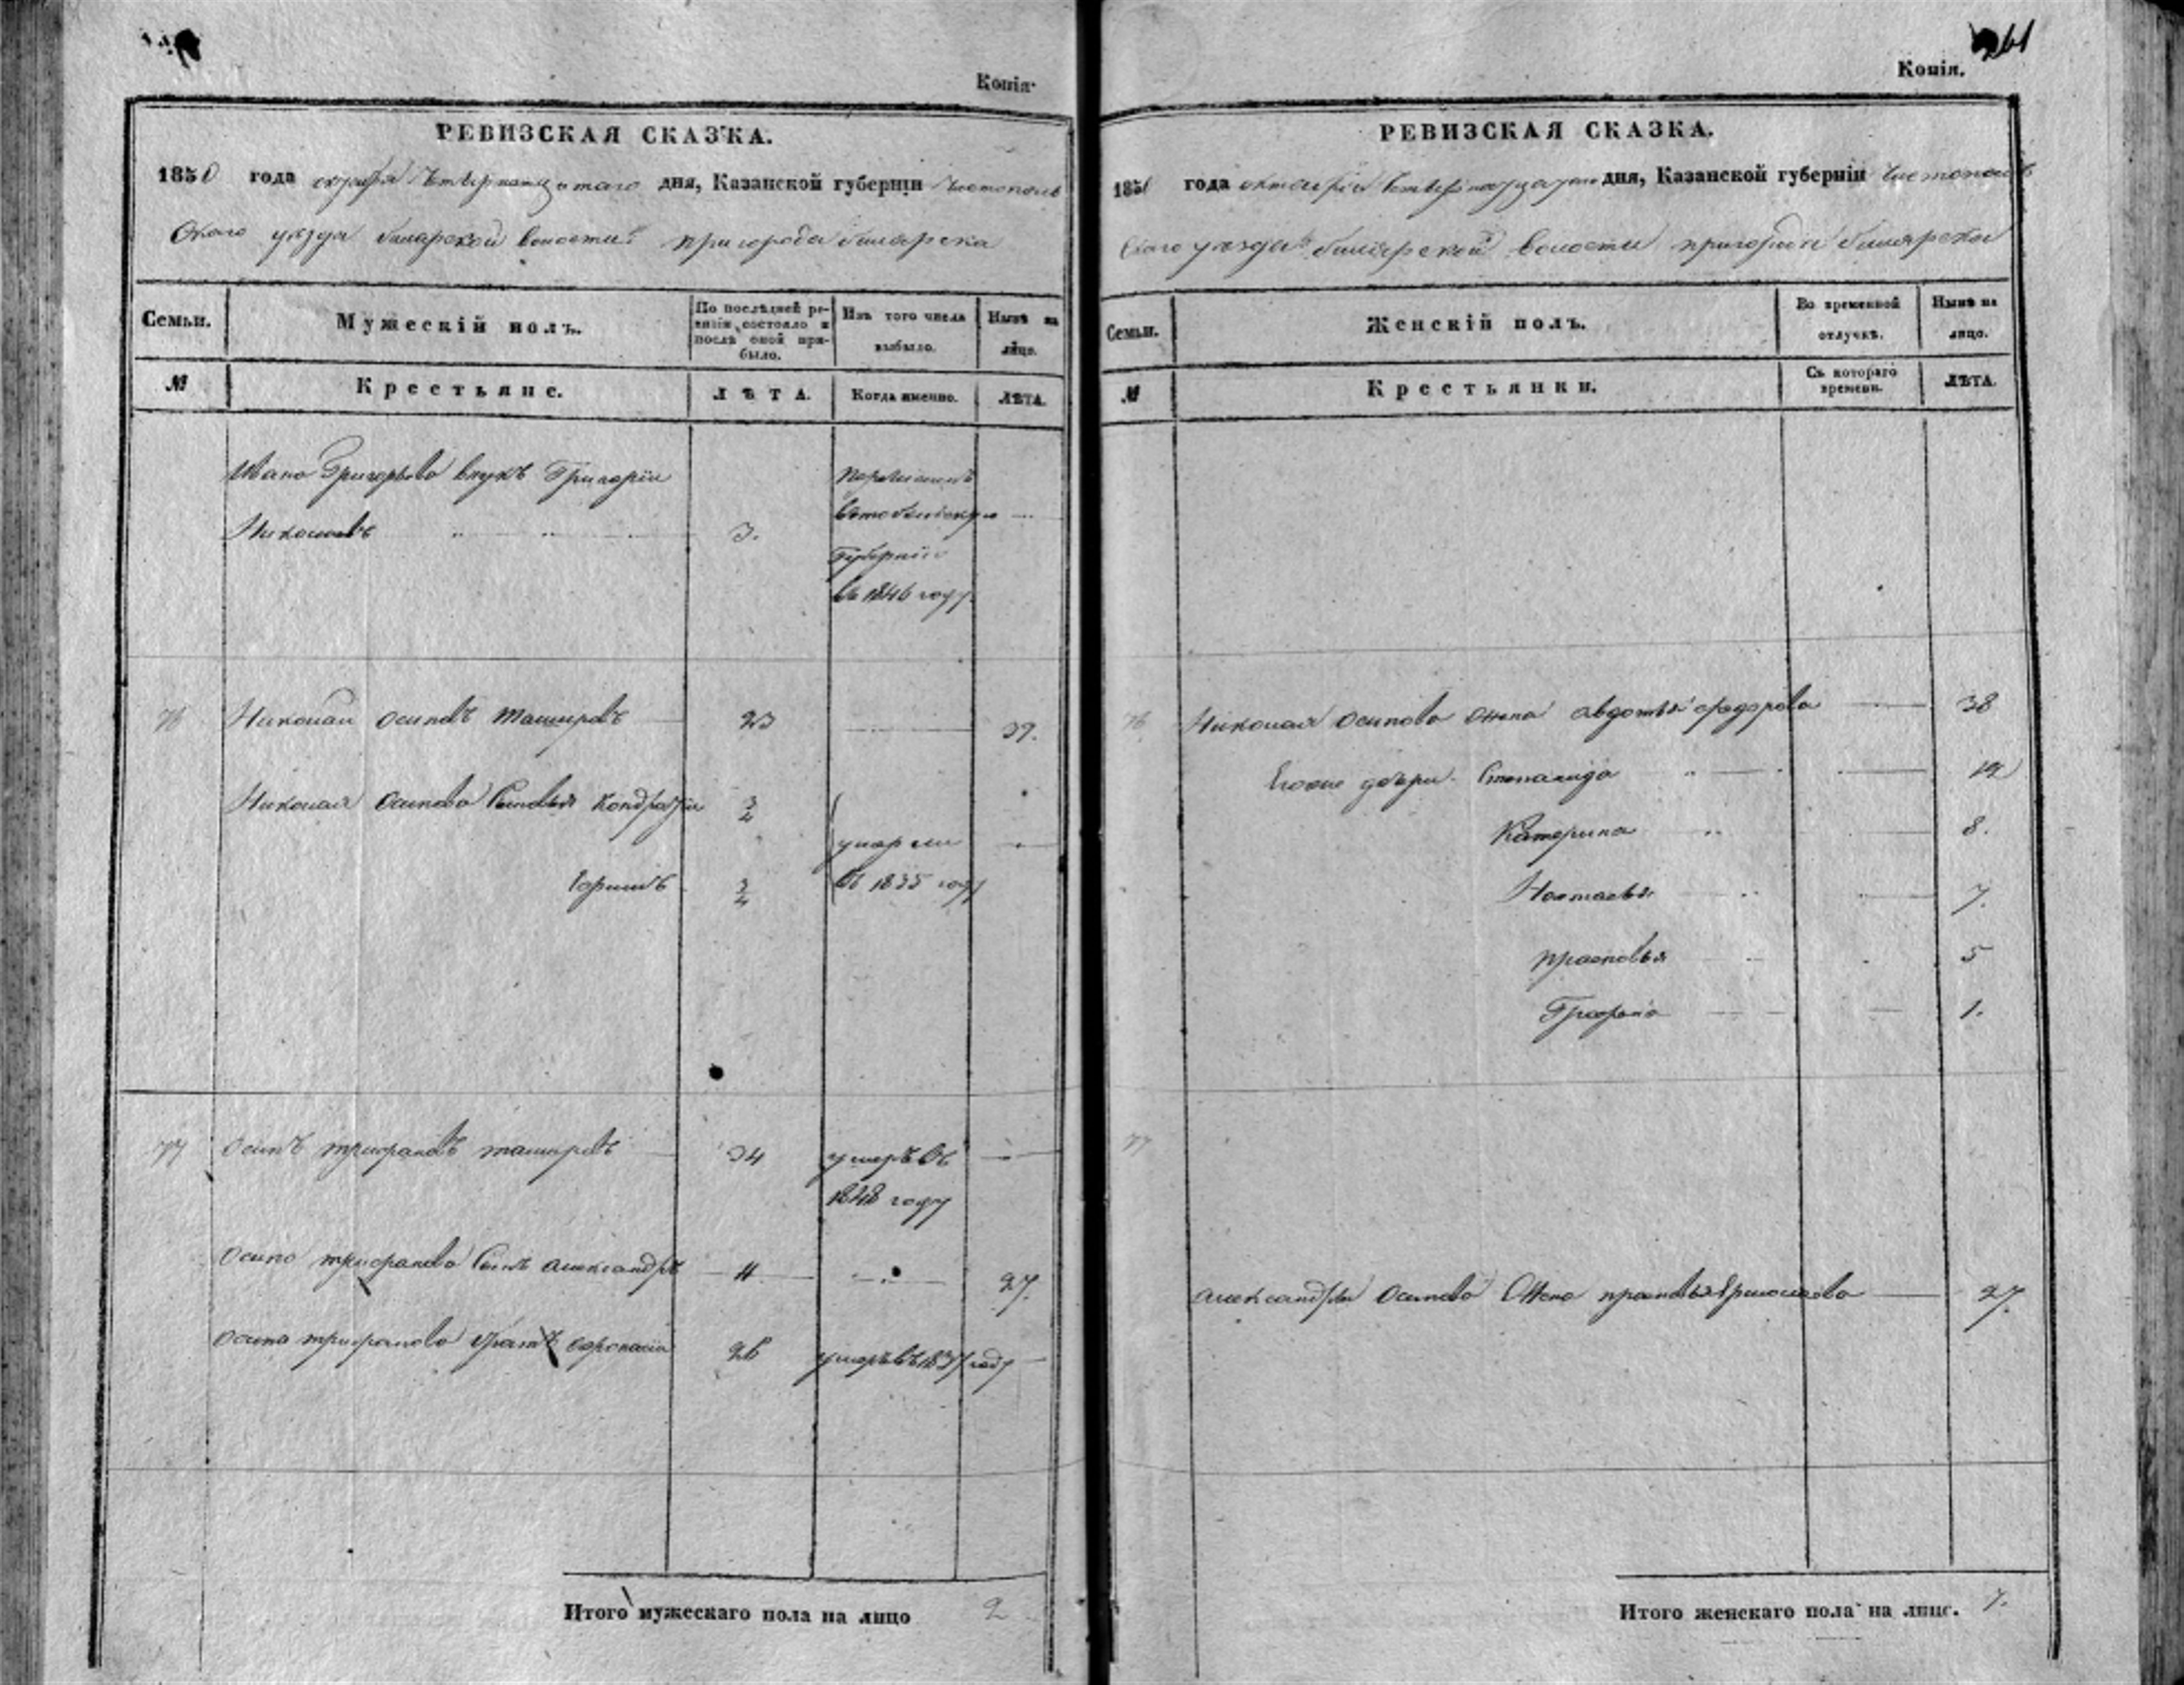 Копія.
РЕВИЗСКАЯ СКАЗКА.
1850 года октября Четырнатцатаго дня, Казанской губерніи Чистополь
скаго уезда билярской волости пригорода билярска
Семьи. Мужескій полъ. По послѣдней ревизіи состояло и послѣ оной прибыло. Изъ того числа выбыло. Нынѣ на лицо.
№ Крестьяне. ЛѢТА. Когда именно. ЛѢТА.
Ивана Григорьева внукъ Григорій
Николаевъ 3.
губернію
въ 1846 году
76 Николай осиповъ ташировъ 23 39.
Николая осипова Сыновья Кондратій 3/4
умерли
3/4 въ 1835 году
77 осипъ трифоновъ ташировъ 34 умеръ въ
1848 году
осипа трифонова Сынъ александръ 11 27.
осипа трифонова братъ 26 умеръ въ 1837 году
Итого мужескаго пола на лицо 2
261
Копія.
РЕВИЗСКАЯ СКАЗКА.
185 года октября дня, Казанской губерніи Чистополь
скаго уезда билярской волости пригорода билярска
Семьи. Женскій полъ. Во временной отлучкѣ. Нынѣ на лицо.
№ Крестьянки. Съ котораго времени. ЛѢТА.
76 Николая осипова жена авдотья федорова 38
Егоже дочери Степанида
Катерина 8.
Настасья 7.
прасковья 5
1.
77
александра осипова Жена прасковья 27.
Итого женскаго пола на лицо. 7.